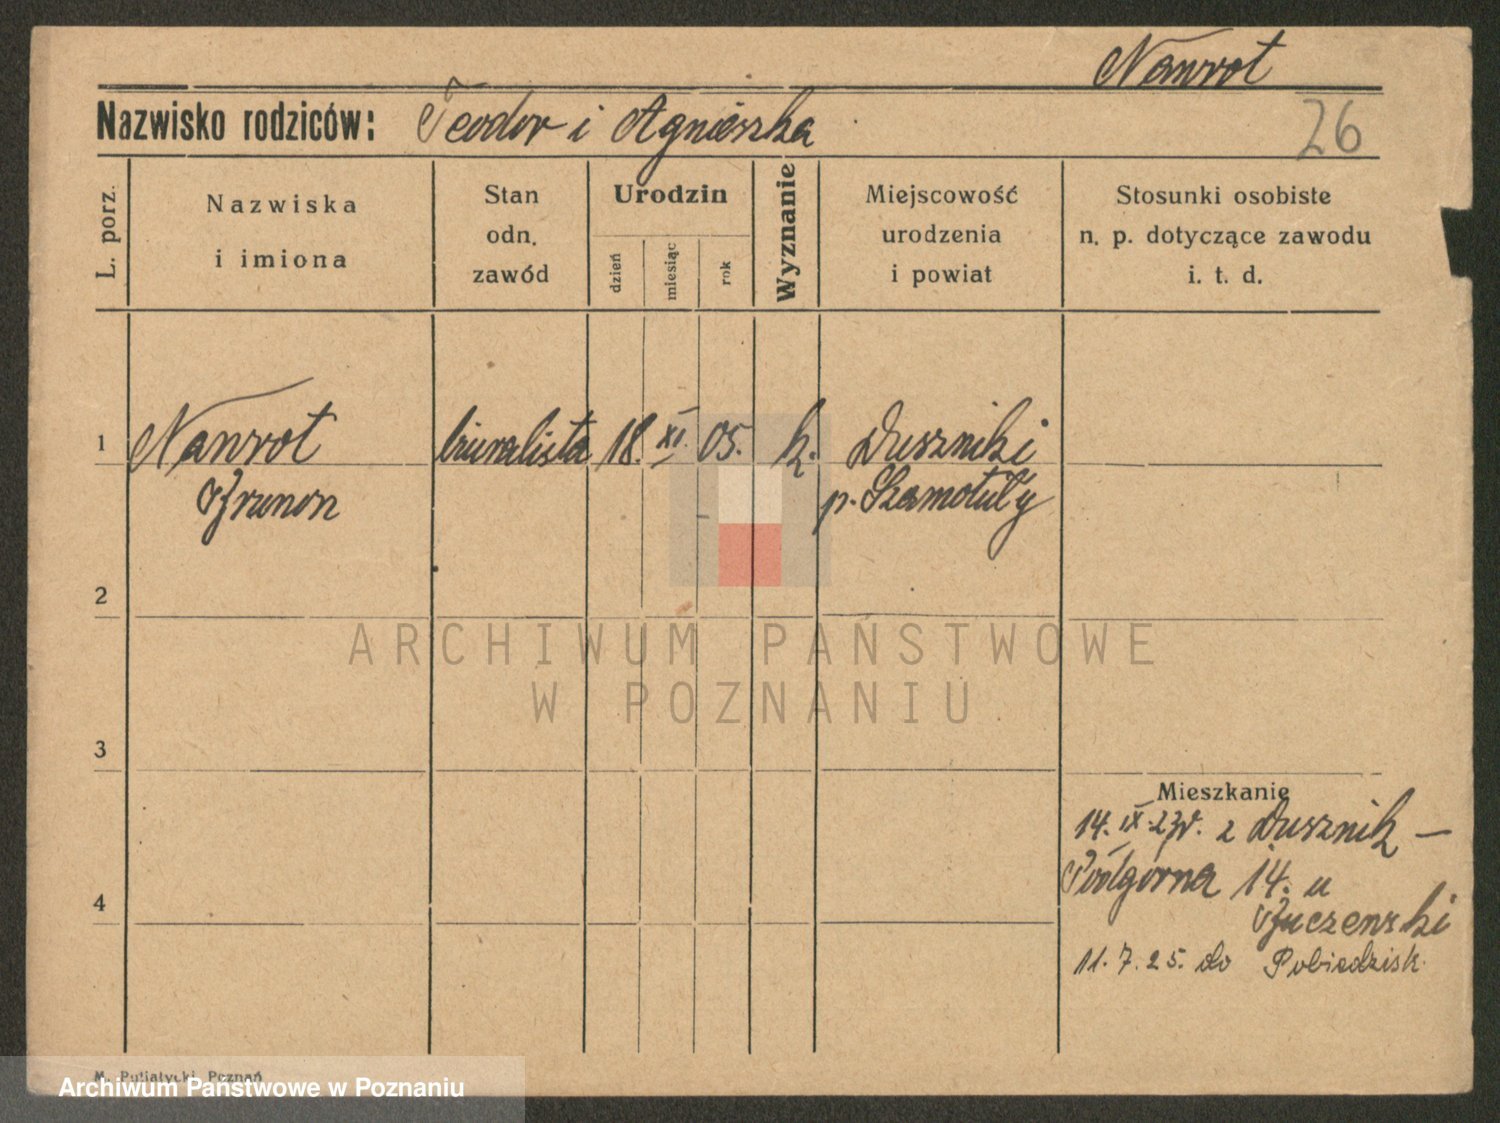 Nawrot
Nazwisko rodziców: Teodor i Agnieszka
26
L. porz.
Nazwiska
i imiona
Stan
odn.
zawód
Urodzin
dzień
miesiąc
rok
Wyznanie
Miejscowość
urodzenia
i powiat
Stosunki osobiste
n. p. dotyczące zawodu
i. t. d.
1 Nawrot biuralista 18. XI. 05. k. Duszniki
Brunon p. Szamotuły
2
3
4
Mieszkanie
14. IX. 23r. z Dusznik —
Podgórna 14. u
11. 7. 25. do Pobiedzisk.
ARCHIWUM PAŃSTWOWE
W POZNANIU
M. Putiatycki, Poznań
Archiwum Państwowe w Poznaniu